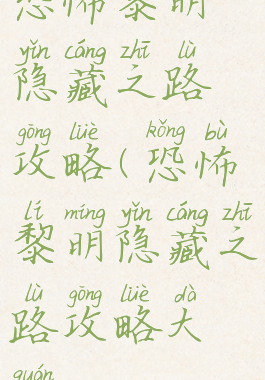 恐怖黎明
yǐn cáng zhī lù
隐藏之路
gōng lüè kǒng bù
攻略(恐怖
lí míng yǐn cáng zhī
黎明隐藏之
lù gōng lüè dà
路攻略大
quán